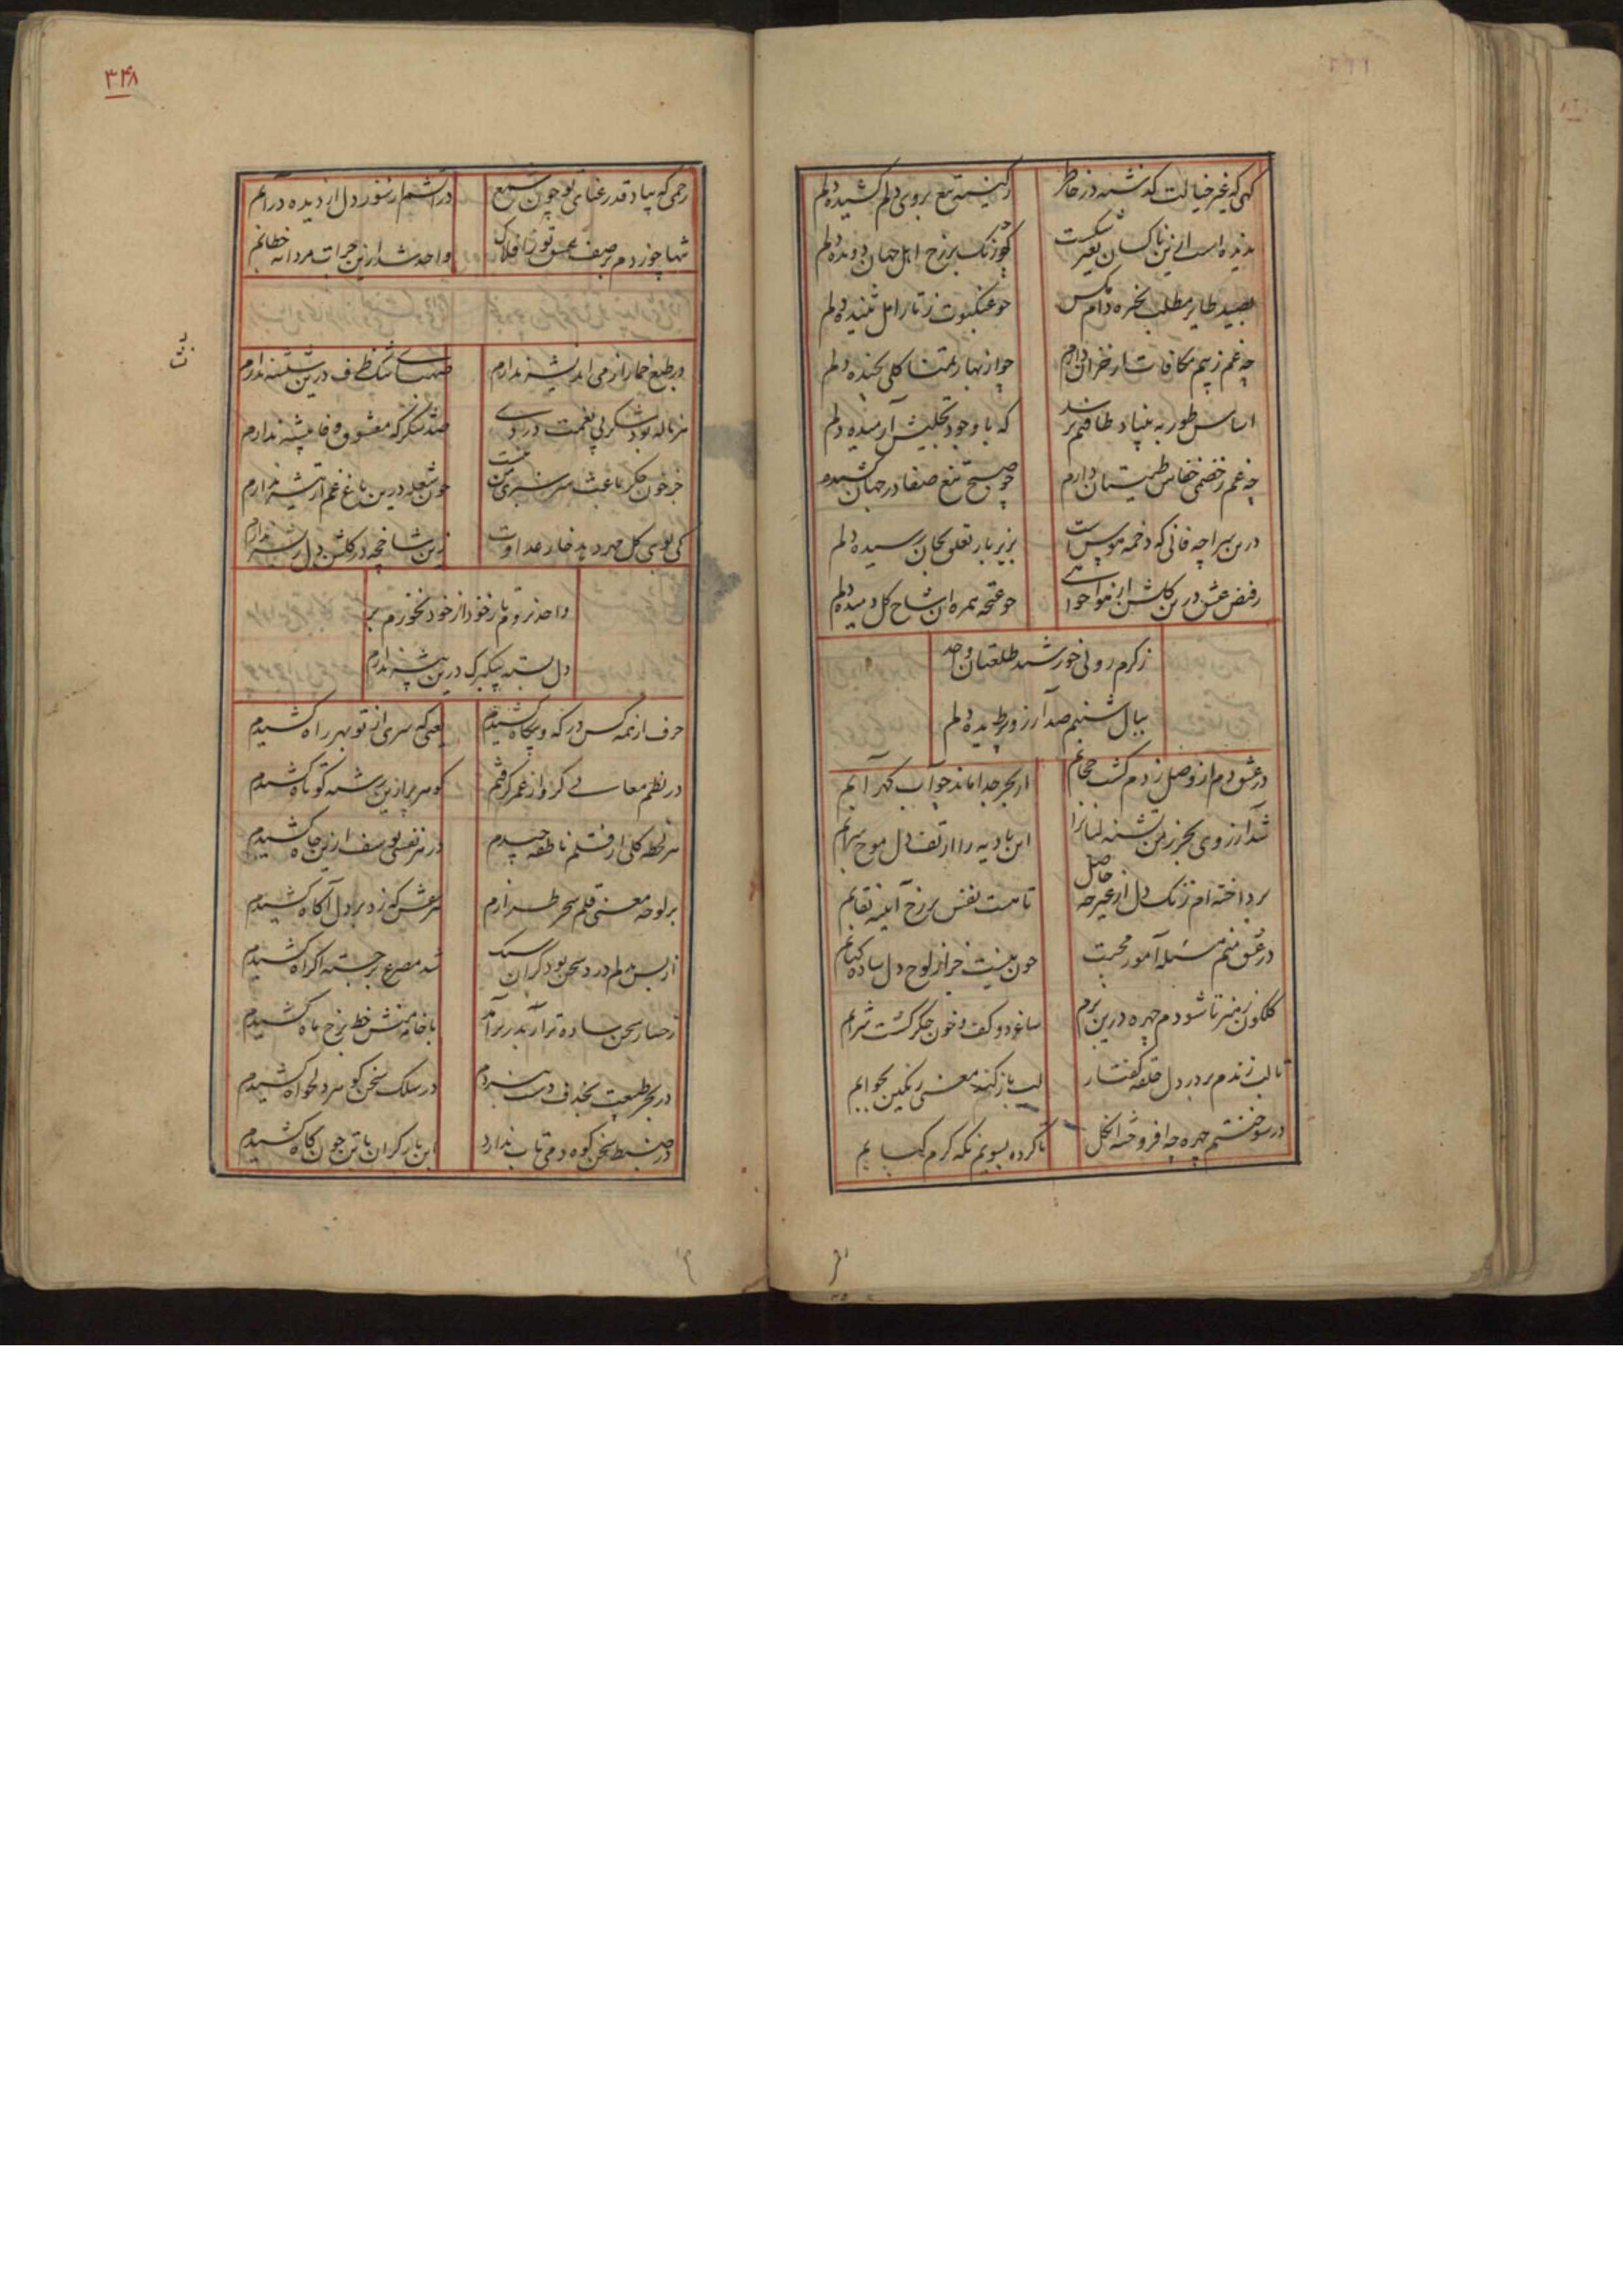 کهی که غیر خیالت گذشته در خاطر
ز کینه تیغ بروی دلم کشیده دلم
چو رنک بر رخ اهل جهان دویده دلم
بصید طایر مطلب دام مکس
چو عنکبوت ز تار امل تنیده دلم
چه غم ز بیم مکافات از خزان دارم
چو از بهار تمنا کلی نچیده دلم
اساس طور به بنیاد طاقتم نرسد
که با وجود تجلیش آرمیده دلم
چه غم ز خصمی خفاش طینتان دارم
چو صبح تیغ صفا در جهان کشیده
درین سراچه فانی که دخمه هوس است
بزیر بار تعلق بجان رسیده دلم
ز فیض عشق درین کلشن از هواخواهی
چو غنچه بر سر این شاخ کل دمیده دلم
ز کرم رونی خورشید طلعتان واحد
ببال شبنم صد آرزو پریده دلم
در عشق دم از وصل زدم کشت حجابم
از بحر جدا ماند چو آب کهر آبم
شد آرزوی بحر ز من تشنه لبانرا
این بادیه را از تف دل موج سرابم
پرداخته ام زنک دل از غیر چه حاصل
تا هست نفس بر رخ آیینه نقابم
در عشق منم مسئله آموز محبت
چون نیست جز از لوح دل ساده کتابم
کلکون ز هنر تا شودم چهره درین بزم
ساغر دو کف و خون جکر کشت شرابم
تا لب نزندم بر در دل حلقه کفتار
لب باز کند معنی رنکین بجوابم
در سوختنم چهره چه افروخته انکل
ناکرده بسویم نکه کرم کبابم
۳۴۸
رحمی که بیاد قد رعنای تو چون شمع
در آتشم از سوز دل از دیده در آبم
شبها چو زدم بر صف عشق تو
واحد شد ازین جرات مردانه خطابم
در طبع خمار از می اندیشه ندارم
صهبای تنک ظرف درین شیشه ندارم
هر ناله بود شکر پی نغمت دردی
صد شکر که معشوق وفا پیشه ندارم
جز خون جکر باعث سرسبزی من نیست
چون شعله درین باغ غم از تیشه ندارم
کی بوی کل مهر دهد خار عداوت
زین شاخچه در کلشن دل ریشه ندارم
واحد نروم بار خود از خود نخورم بر
دل بسته بیکبرک درین بیشه ندارم
حرف از همه کس در که و بیکاه کشیدم
یعنی که سری از تو بهر راه کشیدم
در نظم معانی کرو از عمر کرفتم
کوهر براز این رشته کوتاه کشیدم
هر لحظه کلی از قلم ناطقه چیدم
در هر نفسی یوسف ازین چاه کشیدم
بر لوحه معنی قلم سحر طرازم
هر نقش که زد بر دل آکاه کشیدم
از بس بدلم درد سخن بود کران سنک
شد مصرع برجسته اکر آه کشیدم
رخسار سخن ساده تر آید بدر آمد
با خامه منش خط برخ ماه کشیدم
در بحر طبیعت بخذف دست نبردم
در سلک سخن کوهر دلخواه کشیدم
در ضبط سخن کوه دمی تاب ندارد
این بار کران با تن چون کاه کشیدم